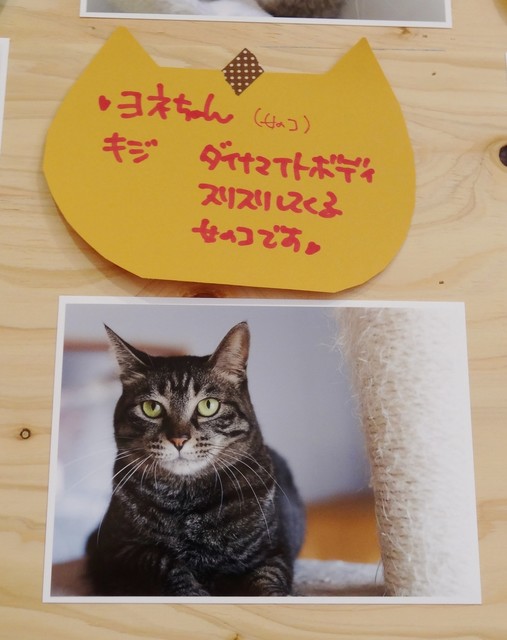 ♥ヨネちゃん (女のコ)
キジ ダイナマイトボディ
スリスリしてくる
女のコです♥